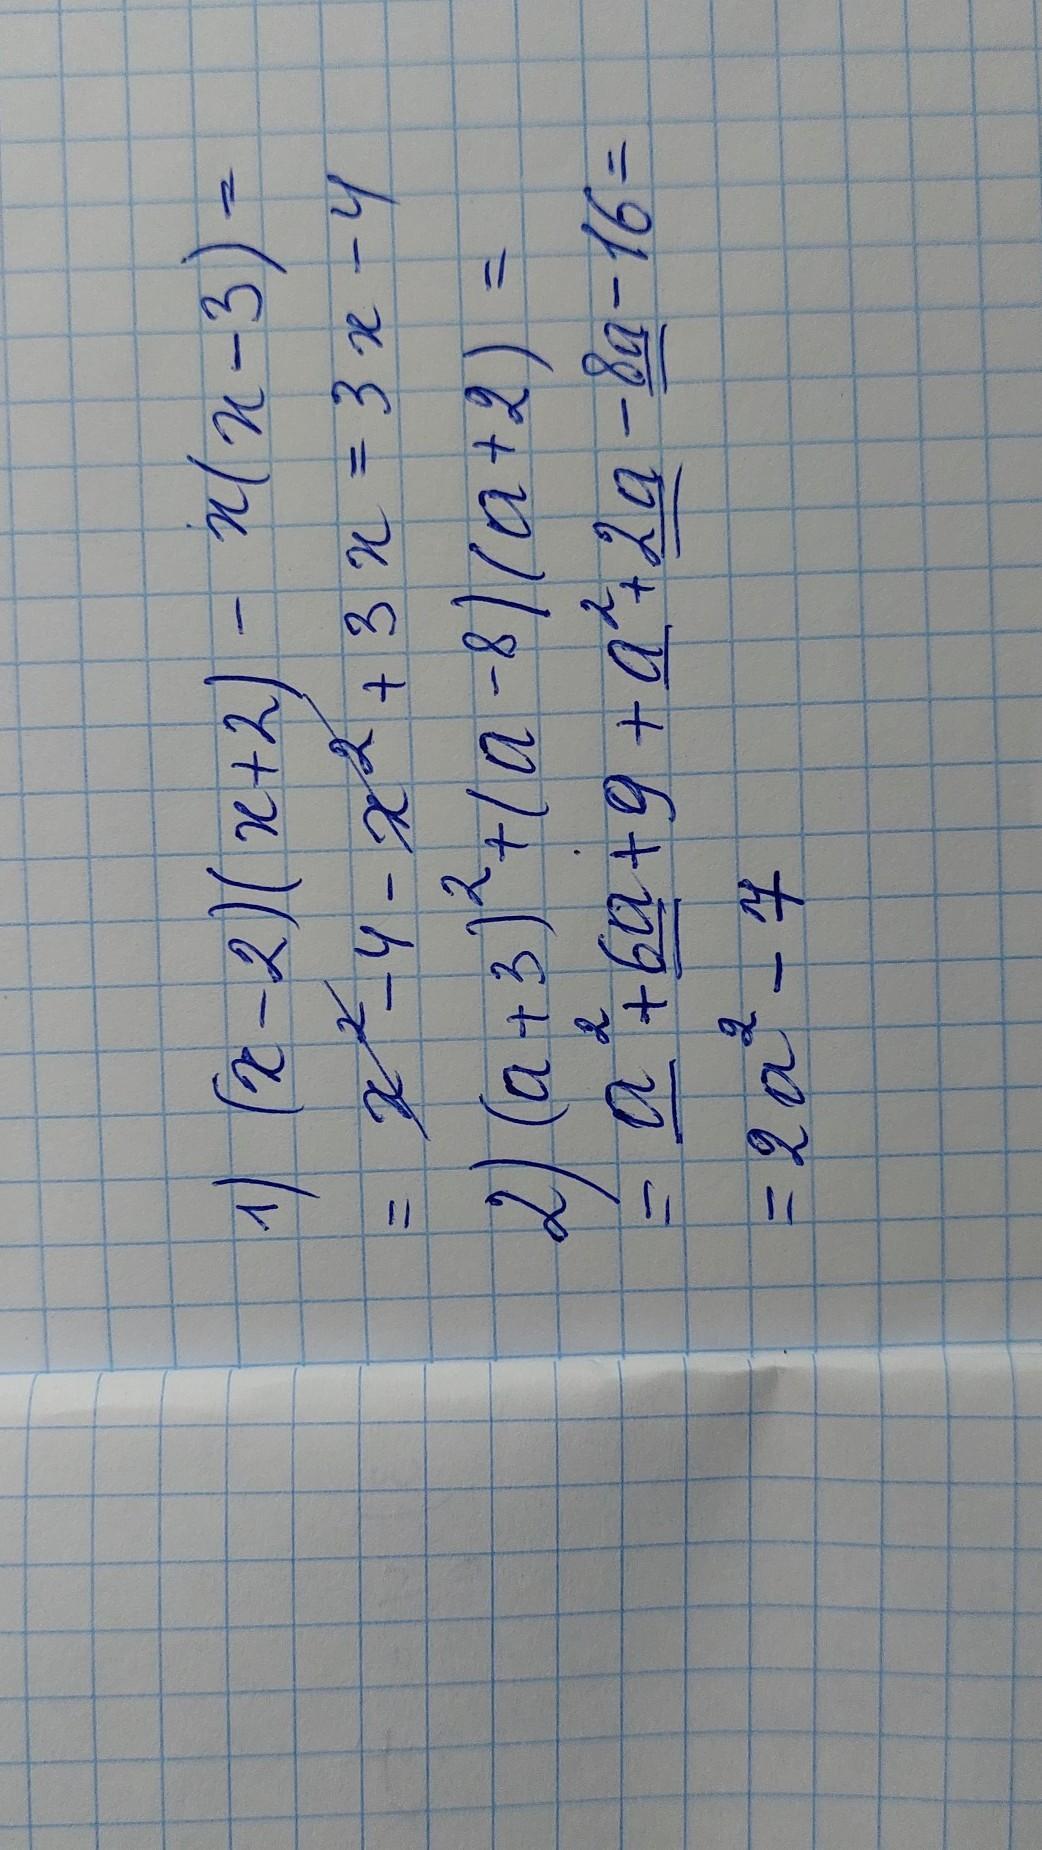 1) (x-2)(x+2) - x(x-3) =
= x² - 4 - x² + 3x = 3x - 4
2) (a+3)² + (a-8)(a+2) =
= a² + 6a + 9 + a² + 2a - 8a - 16 =
= 2a² - 7